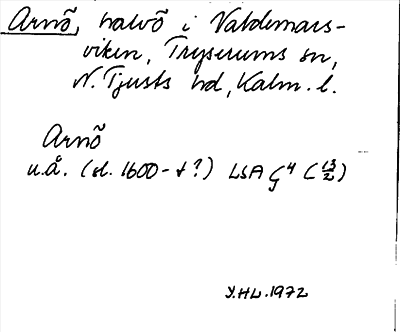 Arnö, halvö i Valdemars-
viken, Tryserums sn,
N. Tjusts hd, Kalm. l.
Arnö
u.å. (sl. 1600-t?) LSA G4 (13/2)
Y.HL.1972